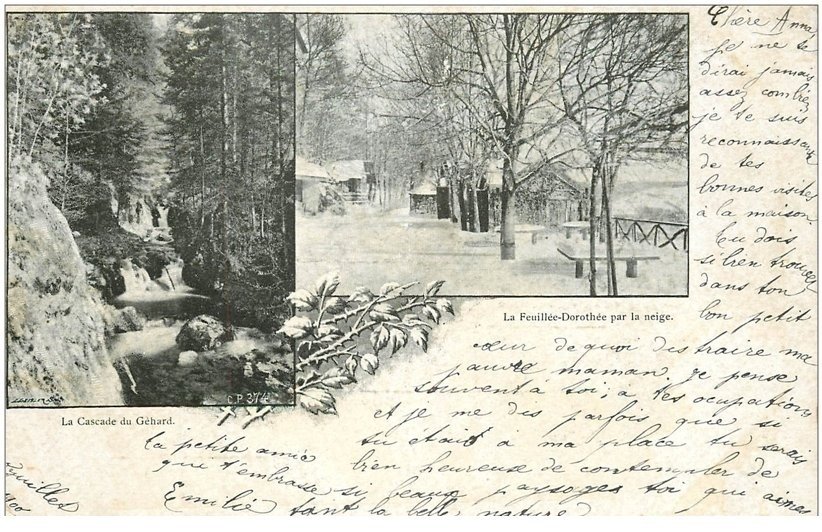 Chère Anna,
je ne te
dirai jamais
assez combien
je te suis
reconnaissante
de tes
bonnes visites
à la maison.
Tu dois
si bien trouver
dans ton
bon petit
cœur de quoi destraire ma
pauvre maman. Je pense
souvent à toi ; à tes occupations
et je me dis parfois que si
tu était à ma place tu serais
bien heureuse de contempler de
si beaux paysages toi qui aimes
tant la belle nature
ta petite amie
qui t'embrasse
Emilie
La Feuillée-Dorothée par la neige.
C.P. 374
La Cascade du Géhard.